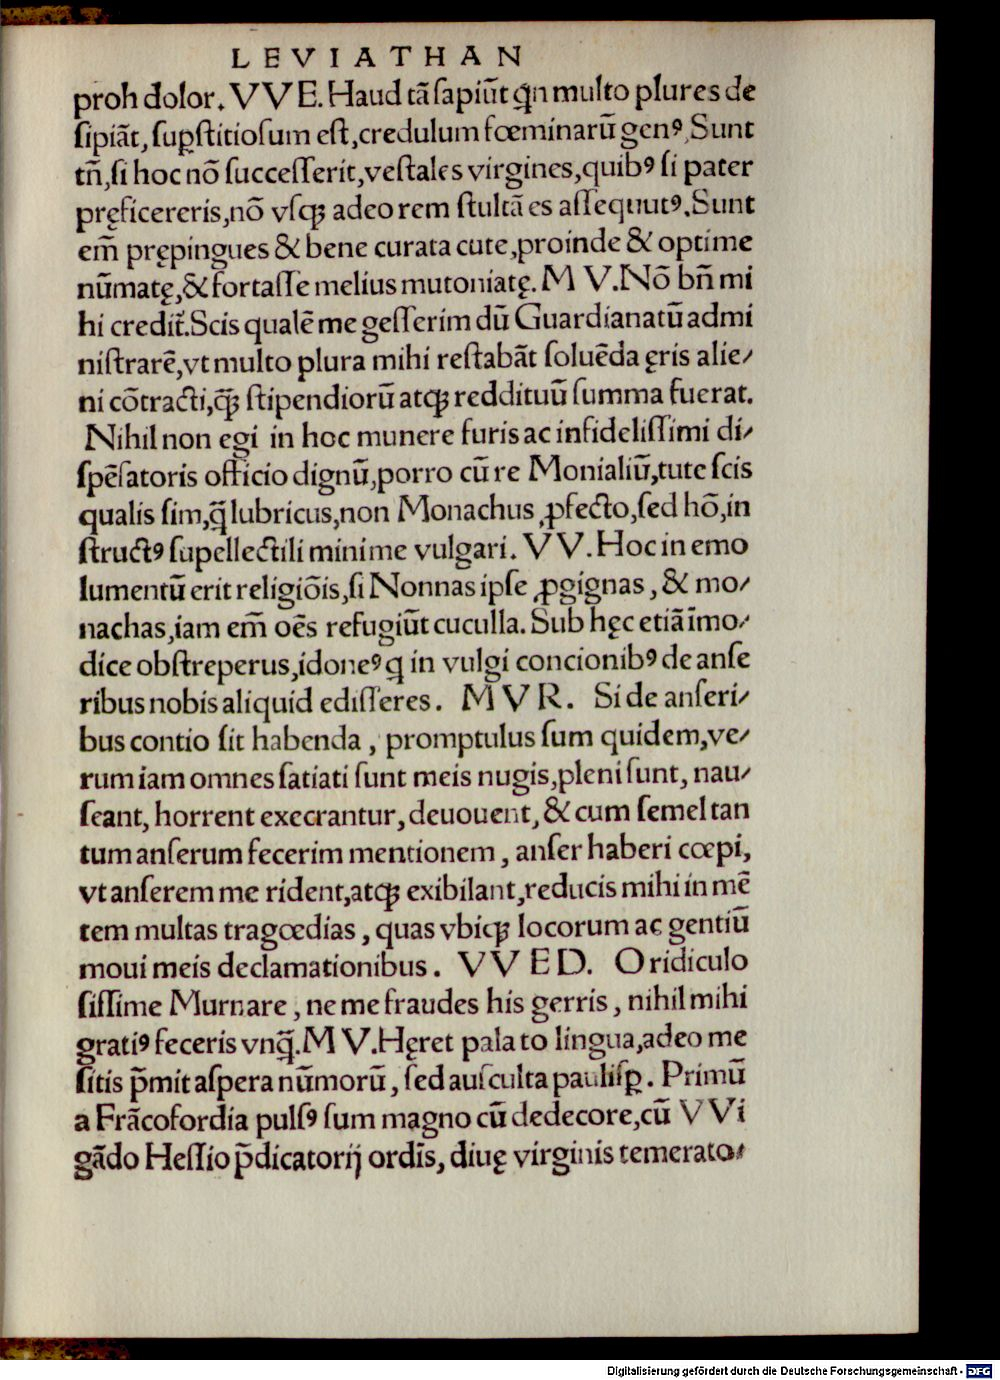 LEVIATHAN
proh dolor. VVE. Haud tã ſapiũt ꝗn multo plures de
ſipiãt, ſuꝑſtitioſum eſt, credulum fœminarũ genꝰ, Sunt
tñ, ſi hoc nõ ſucceſſerit, veſtales virgines, quibꝰ ſi pater
pręficereris, nõ vſqꝫ adeo rem ſtultã es aſſequutꝰ. Sunt
em̃ prępingues & bene curata cute, proinde & optime
nũmatę, & fortaſſe melius mutoniatę. MV. Nõ bñ mi
hi credit̃. Scis qualẽ me geſſerim dũ Guardianatũ admi
niſtrarẽ, vt multo plura mihi reſtabãt ſoluẽda ęris alie/
ni cõtracti, q̃ꝫ ſtipendiorũ atqꝫ reddituũ ſumma fuerat.
Nihil non egi in hoc munere furis ac infideliſſimi di/
ſpẽſatoris officio dignũ, porro cũ re Monialiũ, tute ſcis
qualis ſim, q̃ lubricus, non Monachus ꝓfecto, ſed hõ, in
ſtructꝰ ſupellectili minime vulgari. VV. Hoc in emo
lumentũ erit religiõis, ſi Nonnas ipſe ꝓgignas, & mo/
nachas, iam em̃ oẽs refugiũt cuculla. Sub hęc etiã ĩmo/
dice obſtreperus, idoneꝰ ꝗ in vulgi concionibꝰ de anſe
ribus nobis aliquid ediſſeres. MVR. Si de anſeri/
bus contio ſit habenda, promptulus ſum quidem, ve/
rum iam omnes ſatiati ſunt meis nugis, pleni ſunt, nau/
ſeant, horrent execrantur, deuouent, & cum ſemel tan
tum anſerum fecerim mentionem, anſer haberi cœpi,
vt anſerem me rident, atqꝫ exibilant, reducis mihi in mẽ
tem multas tragœdias, quas vbiqꝫ locorum ac gentiũ
moui meis declamationibus. VVED. O ridiculo
ſiſſime Murnare, ne me fraudes his gerris, nihil mihi
gratiꝰ feceris vnq̃. MV. Hęret palato lingua, adeo me
ſitis p̃mit aſpera nũmorũ, ſed auſculta pauliſꝑ. Primũ
a Frãcofordia pulſꝰ ſum magno cũ dedecore, cũ VVi
gãdo Heſſio p̃dicatorij ordĩs, diuę virginis temerato/
Digitalisierung gefördert durch die Deutsche Forschungsgemeinschaft - DFG